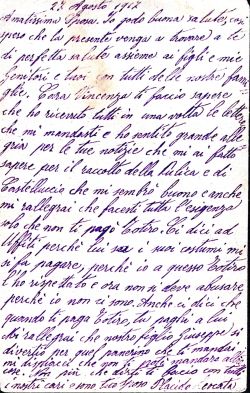 22 Agosto 1912
Amatissima Sposa. Io godo buona salute, così
spero che la presente venga a trovare a te
di perfetta salute assieme ai figli e miei
Genitori e tuoi con tutti delle nostre fami
glie. Cara Vincenza ti faccio sapere
che ho ricevuto tutti in una volta le lettere
che mi mandasti e ho sentito grande alle
gria per le tue notizie che mi ai fatto
sapere per il raccolto della
Castelluccio che mi sembro buono e anche
mi rallegrai che facesti tutta l'esigenza
solo che non ti pagò Totiro. Ci dici ad
perchè lui sa i suoi costumi mi
si fa pagare, perchè io a questo Totiro
l'ho rispettato e ora non si deve abusare,
perchè io non ci sono. Anche ci dici che
quando ti paga Totiro, tu paghi a lui
Mi rallegrai che nostro figlio Giuseppe si
divertio per quel che ti mandai
mi dispiacii che non ti potei mandare altre
cose. Non più che dirti ti bacio con tutti
i nostri cari e sono tuo sposo Placido